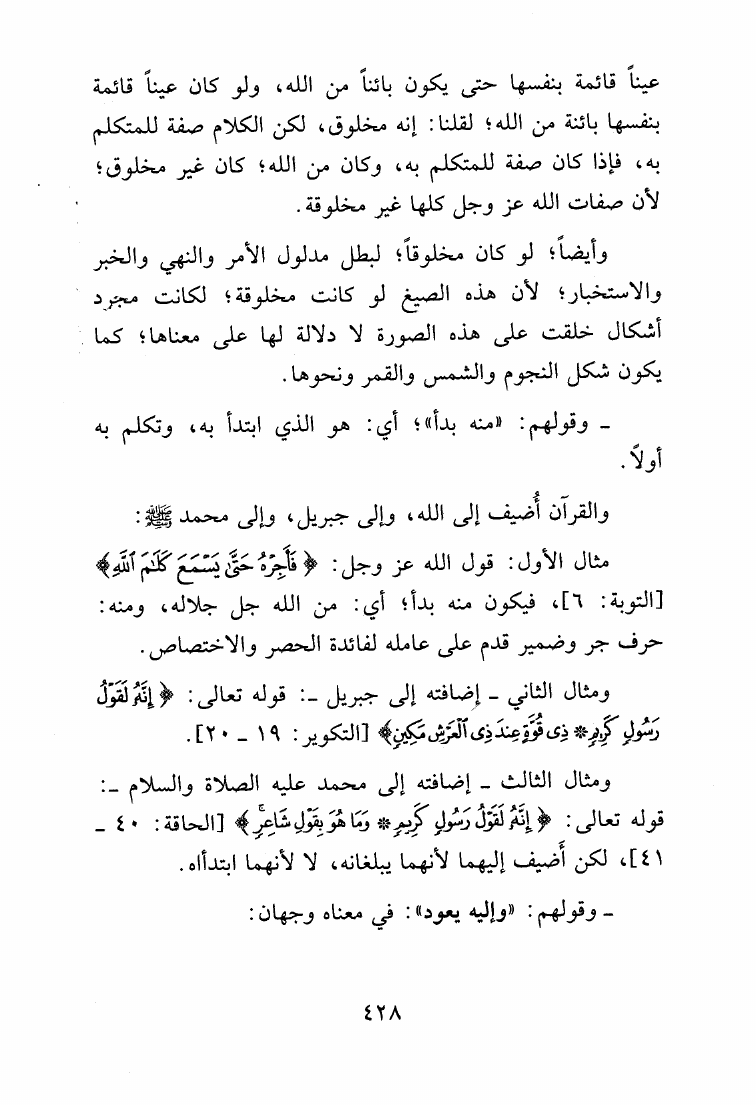 عيناً قائمة بنفسها حتى يكون بائناً من الله، ولو كان عيناً قائمة
بنفسها بائنة من الله؛ لقلنا: إنه مخلوق، لكن الكلام صفة للمتكلم
به، فإذا كان صفة للمتكلم به، وكان من الله؛ كان غير مخلوق؛
لأن صفات الله عز وجل كلها غير مخلوقة.
وأيضاً؛ لو كان مخلوقاً؛ لبطل مدلول الأمر والنهي والخبر
والاستخبار؛ لأن هذه الصيغ لو كانت مخلوقة؛ لكانت مجرد
أشكال خلقت على هذه الصورة لا دلالة لها على معناها؛ كما
يكون شكل النجوم والشمس والقمر ونحوها.
ـ وقولهم: «منه بدأ»؛ أي: هو الذي ابتدأ به، وتكلم به
أولاً.
والقرآن أُضيف إلى الله، وإلى جبريل، وإلى محمد ﷺ:
مثال الأول: قول الله عز وجل: ﴿فَأَجِرْهُ حَتَّىٰ يَسْمَعَ كَلَٰمَ ٱللَّهِ﴾
[التوبة: ٦]، فيكون منه بدأ؛ أي: من الله جل جلاله، ومنه:
حرف جر وضمير قدم على عامله لفائدة الحصر والاختصاص.
ومثال الثاني ـ إضافته إلى جبريل ـ: قوله تعالى: ﴿إِنَّهُۥ لَقَوْلُ
رَسُولٍ كَرِيمٍ * ذِى قُوَّةٍ عِندَ ذِى ٱلْعَرْشِ مَكِينٍ﴾ [التكوير: ١٩ ـ ٢٠].
ومثال الثالث ـ إضافته إلى محمد عليه الصلاة والسلام ـ:
قوله تعالى: ﴿إِنَّهُۥ لَقَوْلُ رَسُولٍ كَرِيمٍ * وَمَا هُوَ بِقَوْلِ شَاعِرٍۚ﴾ [الحاقة: ٤٠ ـ
٤١]، لكن أُضيف إليهما لأنهما يبلغانه، لا لأنهما ابتدأاه.
ـ وقولهم: «وإليه يعود»: في معناه وجهان:
٤٢٨